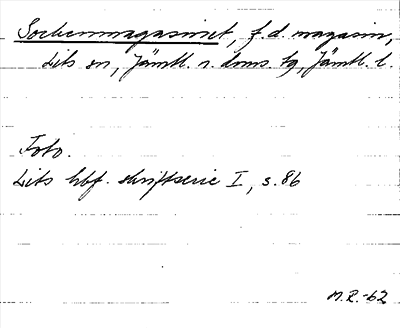 Sockenmagasinet, f.d. magasin,
Lits sn, Jämtl. n. doms. tg, Jämtl. l.
Foto.
Lits hbf. skriftserie I, s. 86
M.R.-62